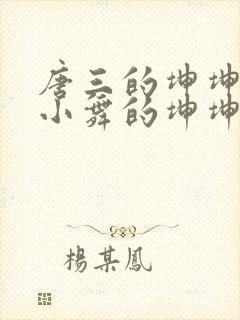 唐三的坤坤
小舞的坤坤
楊某鳳